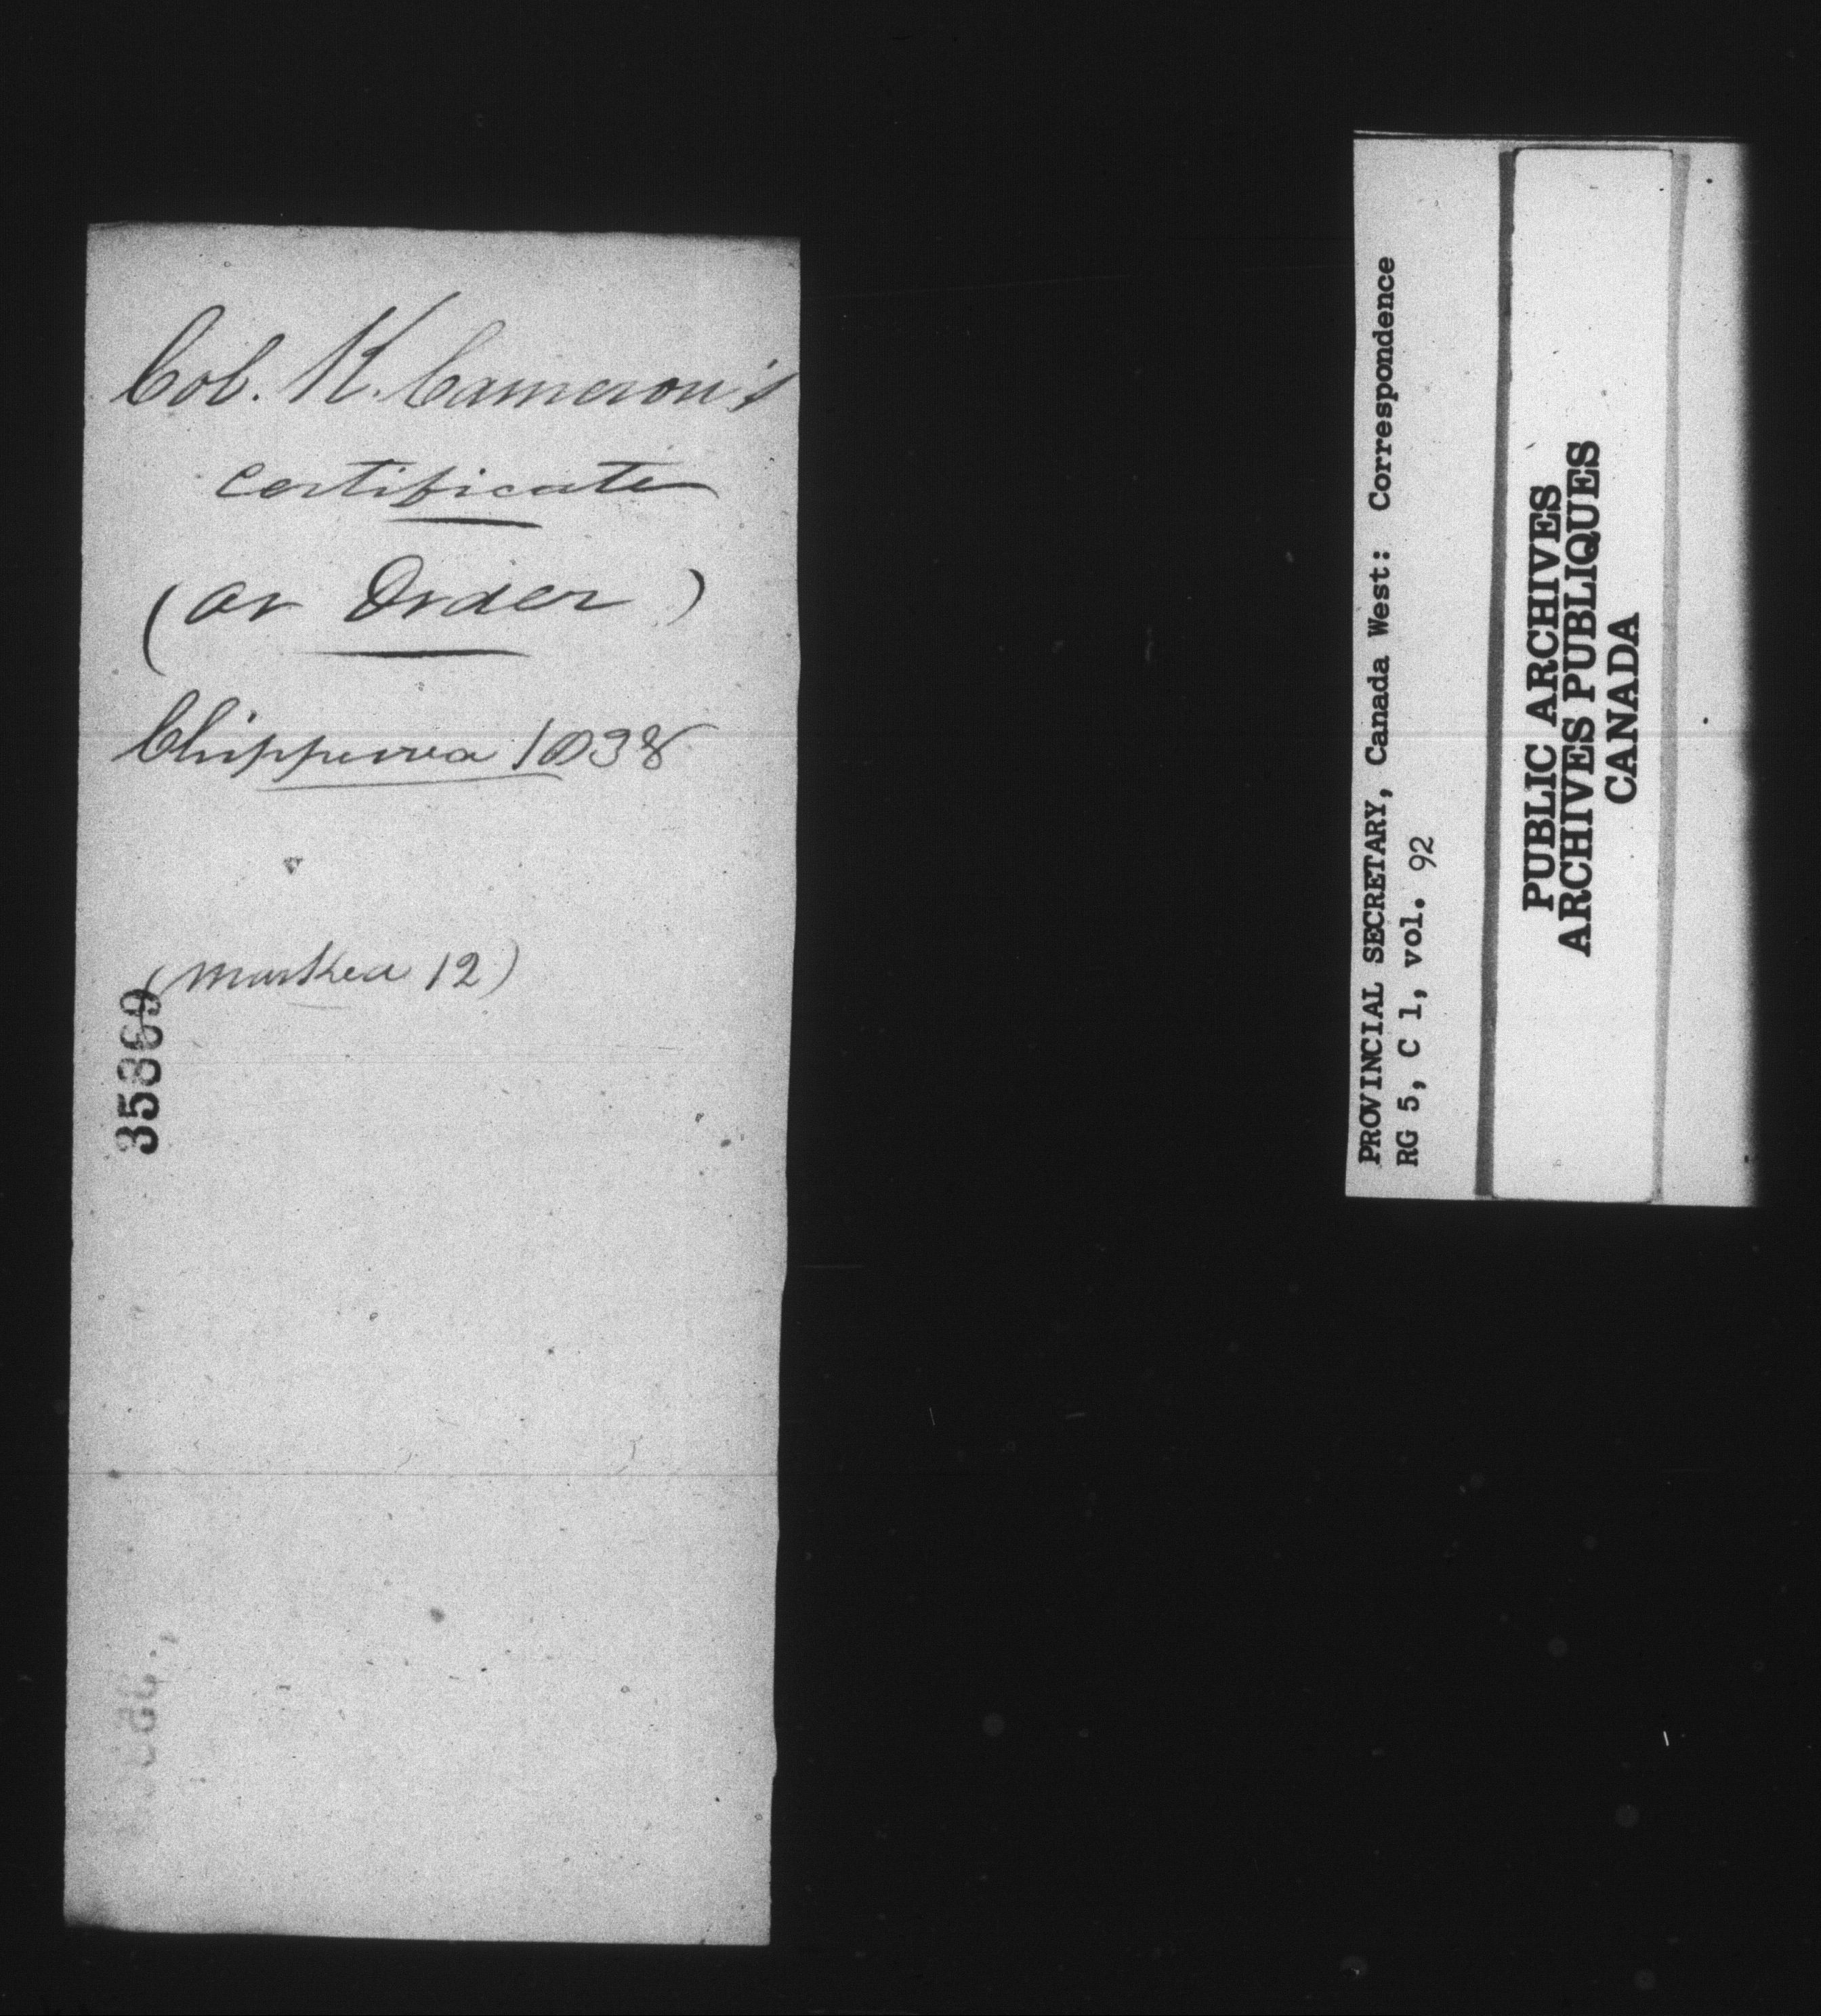 Col. K. Cameron's
Certificate
(or Order)
Chippewa 1838
(Marked 12)
35869
PROVINCIAL SECRETARY, Canada West: Correspondence
RG 5, C 1, vol. 92
PUBLIC ARCHIVES
ARCHIVES PUBLIQUES
CANADA